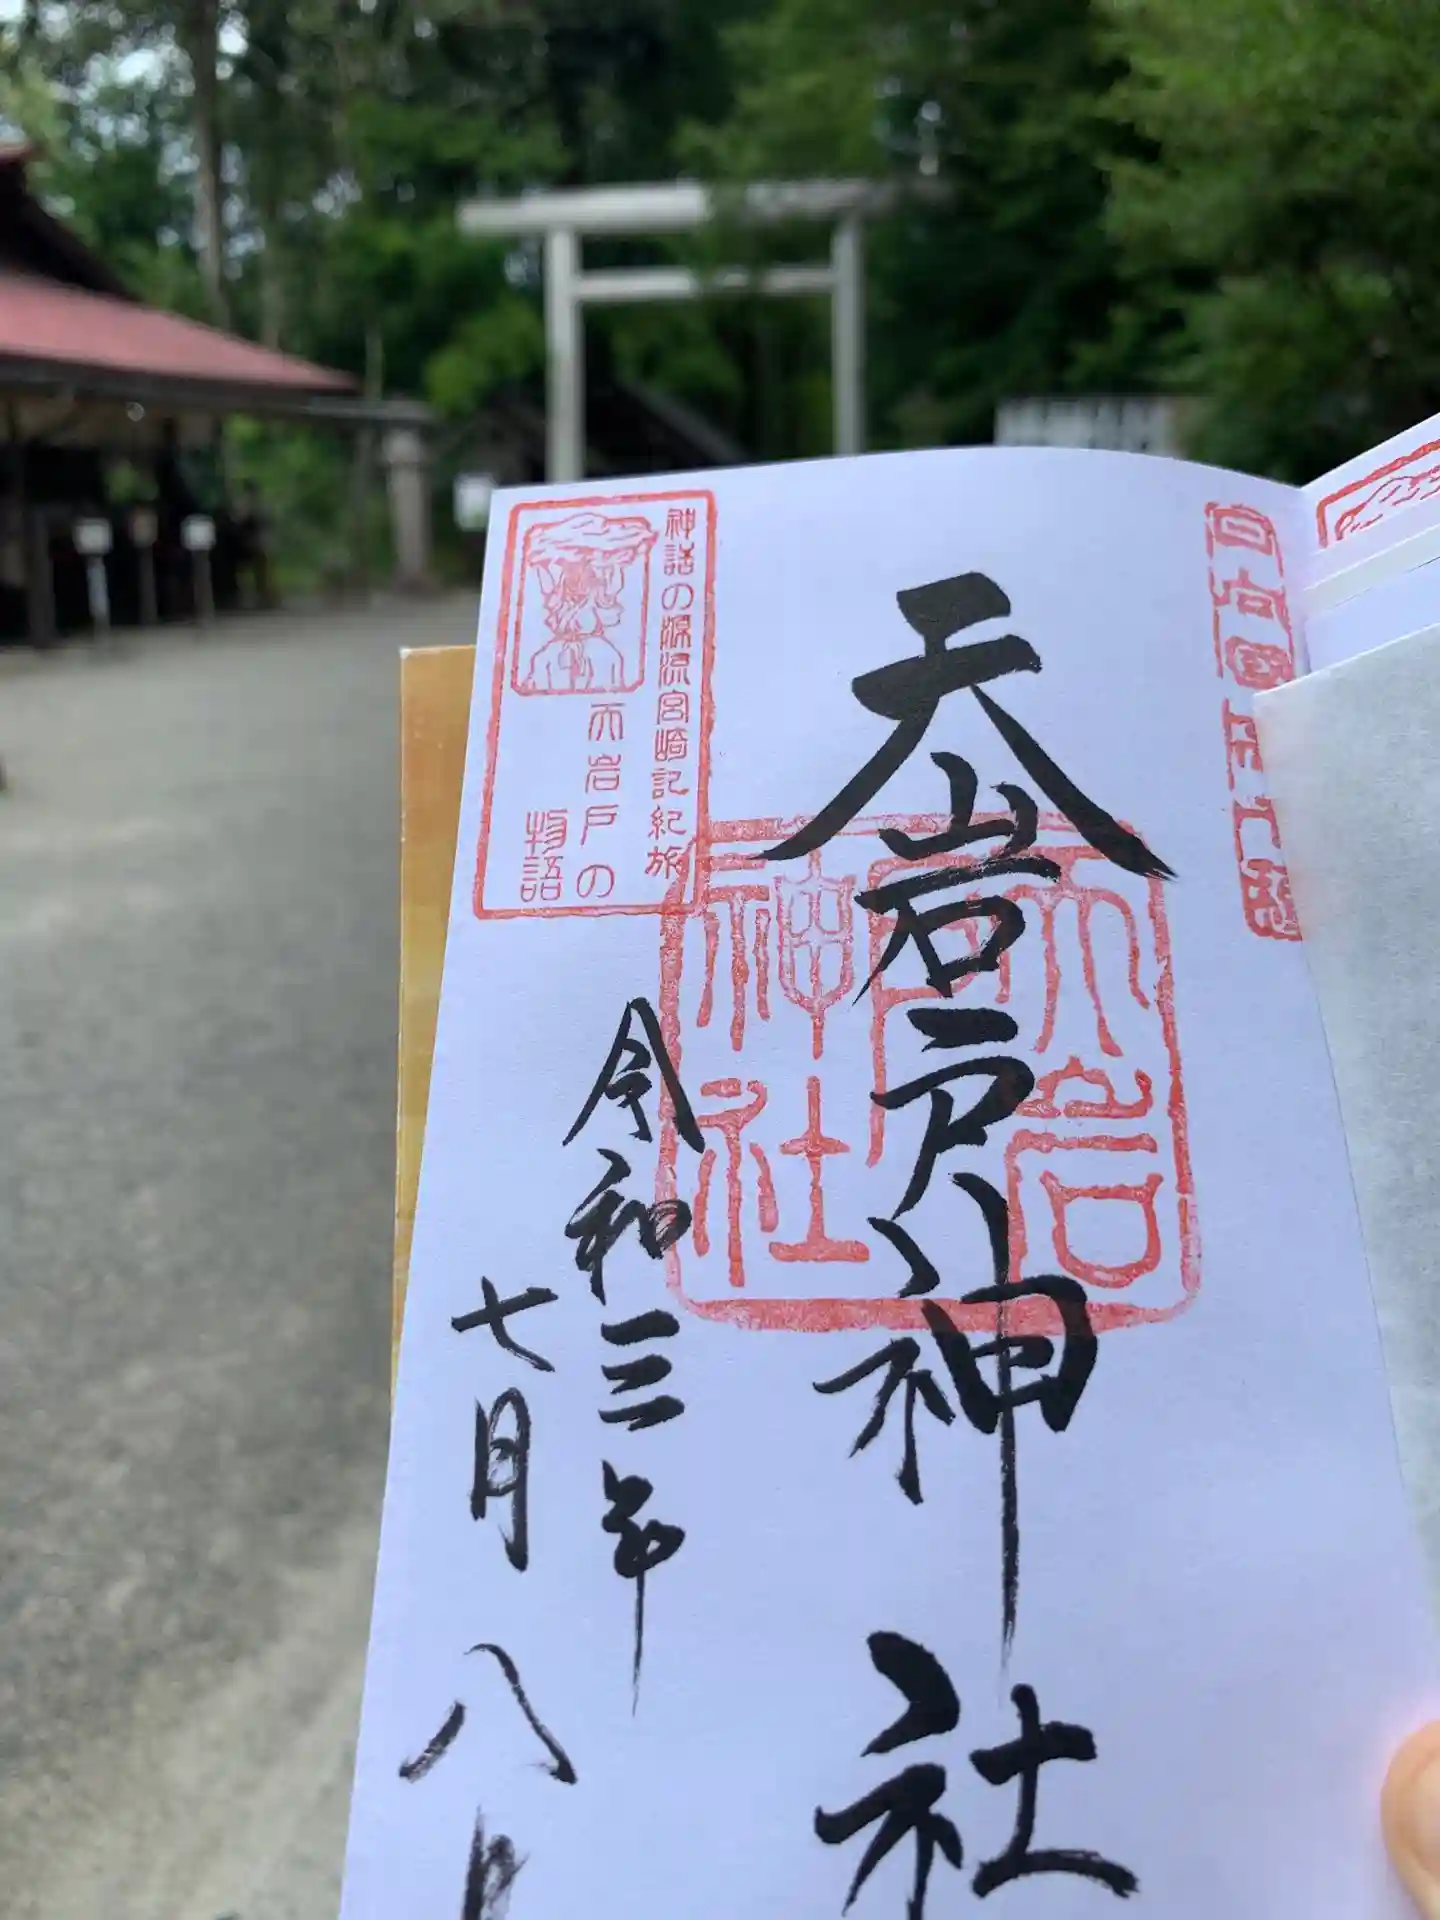 日向国
天岩戸神社
天岩戸神社
神話の源流宮崎記紀旅
天岩戸の
物語
令和三年
七月八日